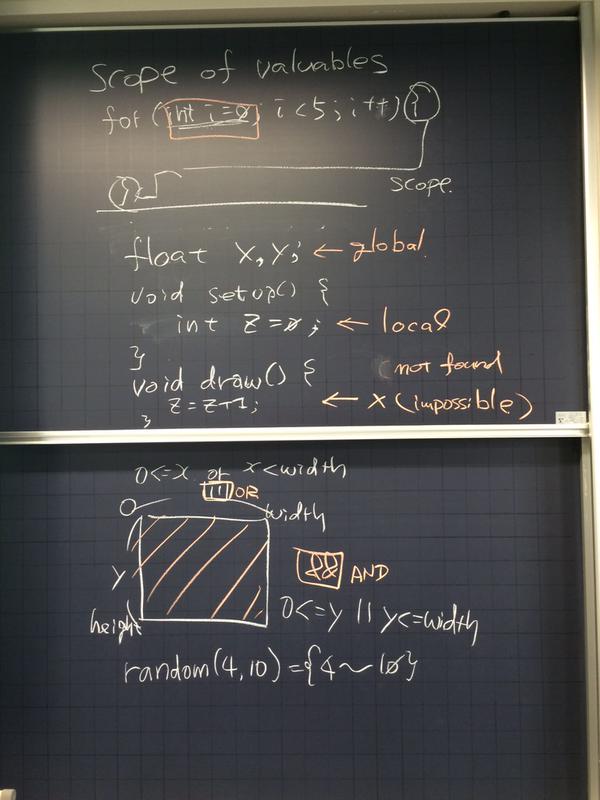 Scope of valuables
for (int i=0; i<5; i++) {
scope.
float x, y; ← global.
void setup() {
int z=0; ← local
}
void draw() { not found
z=z+1; ← x (impossible)
}
0<=x or x<width
|| OR
0 width
y && AND
0<=y || y<=width
height
random(4,10) = {4~10}